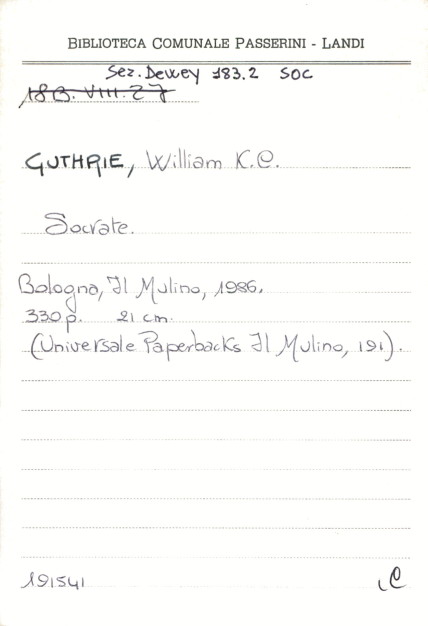 BIBLIOTECA COMUNALE PASSERINI - LANDI
Sez. Dewey 183.2 SOC
18B. VIII. 27
GUTHRIE, William K.C.
Socrate.
Bologna, Il Mulino, 1986.
330 p. 21 cm.
(Universale Paperbacks Il Mulino, 191).
191541